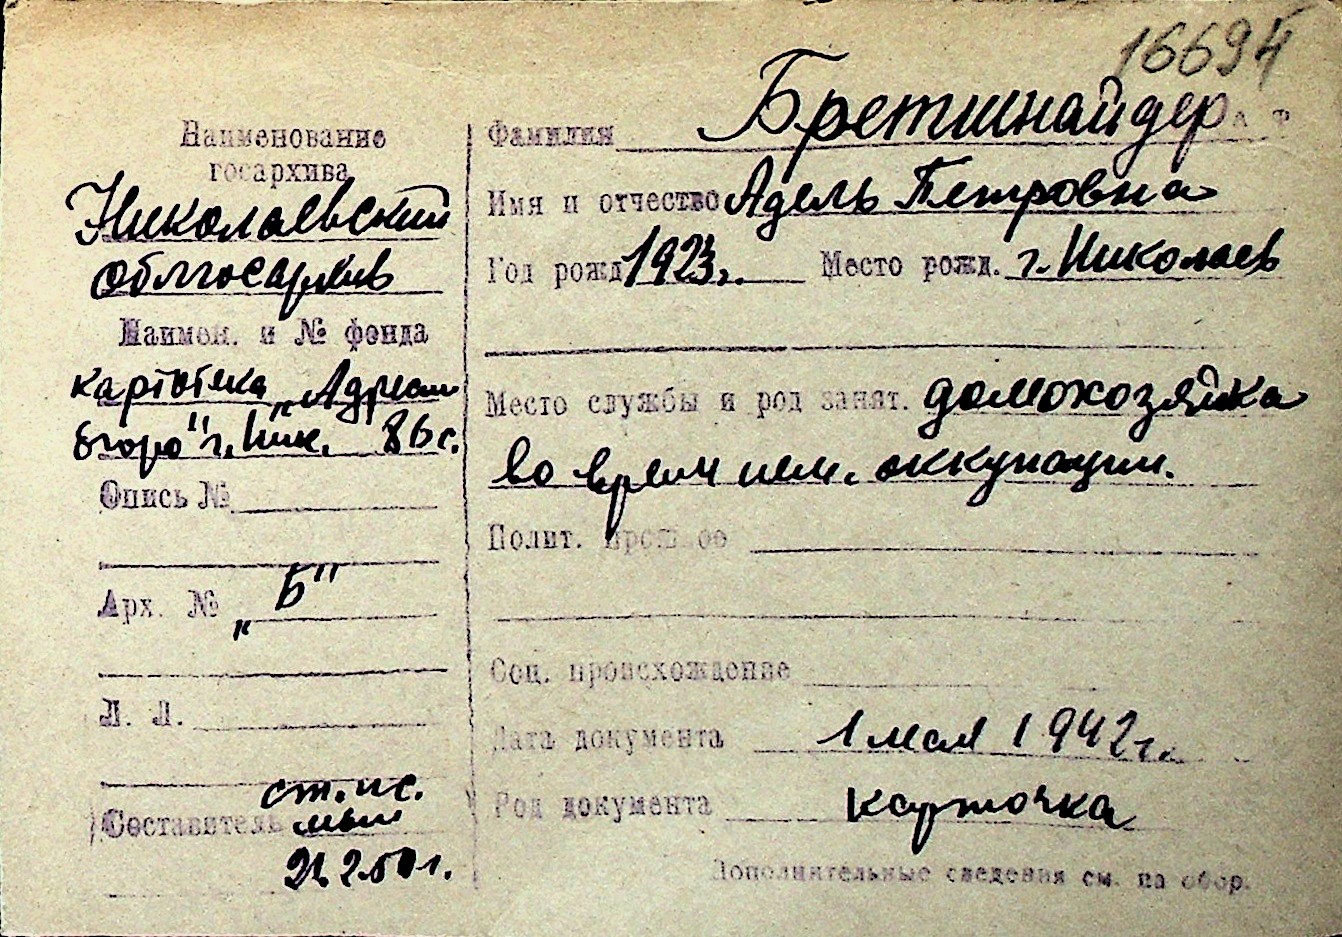 16694
Наименование
госархива
Николаевский
облгосархив
Наимен. и № фонда
картотека „Адресн
бюро" г. Ник. 86 с.
Опись №
Арх. № „Б"
Л. Л.
Составитель
ст. ис.
2.50 г.
Фамилия Бретшнайдер
Имя и отчество Адель Петровна
Год рожд 1923 г. Место рожд. г. Николаев
Место службы и род занят. домохозяйка
во время нем. оккупации.
Полит. прошлое
Соц. происхождение
Дата документа 1 мая 1942 г.
Род документа карточка
Дополнительные сведения см. на обор.